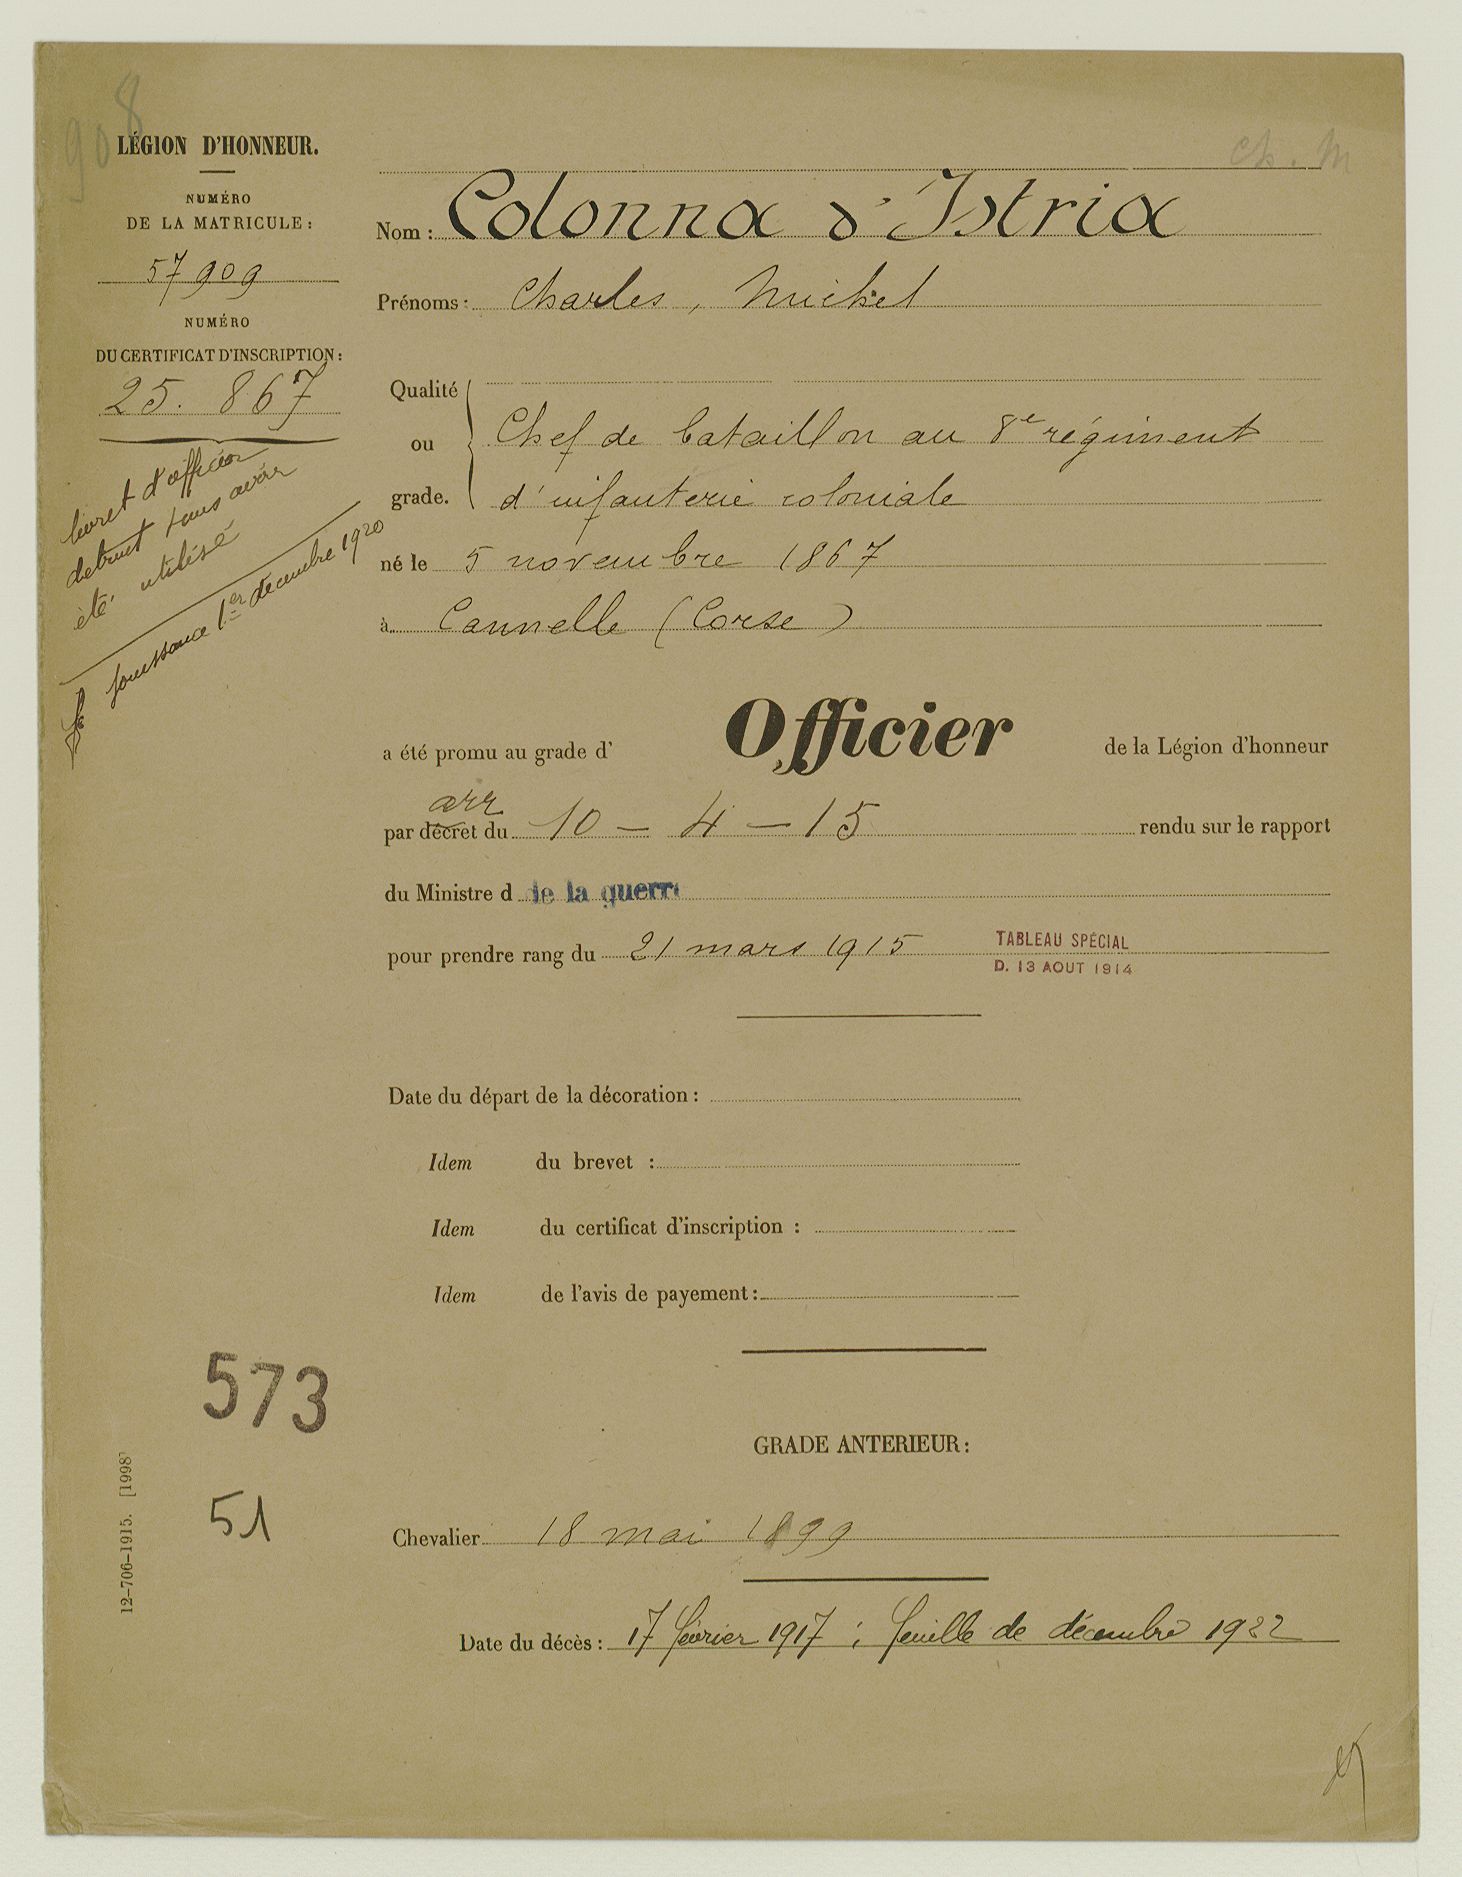 908
LÉGION D'HONNEUR.
Ch. M
NUMÉRO
DE LA MATRICULE :
57909
NUMÉRO
DU CERTIFICAT D'INSCRIPTION :
25. 867
livret d'officier
detruit sans avoir
été utilisé
Jouissance 1er décembre 1920
Nom : Colonna d'Istria
Prénoms : Charles, Michel
Qualité
ou
grade.
Chef de bataillon au 8e régiment
d'infanterie coloniale
né le 5 novembre 1867
à Cannelle (Corse)
a été promu au grade d' Officier de la Légion d'honneur
arr
par décret du 10 - 4 - 15 rendu sur le rapport
du Ministre d de la guerre
pour prendre rang du 21 mars 1915
TABLEAU SPÉCIAL
D. 13 AOUT 1914
Date du départ de la décoration :
Idem du brevet :
Idem du certificat d'inscription :
Idem de l'avis de payement :
573
51
12-706-1915. [1998]
GRADE ANTERIEUR :
Chevalier 18 mai 1899
Date du décès : 17 février 1917 ; feuille de décembre 1922